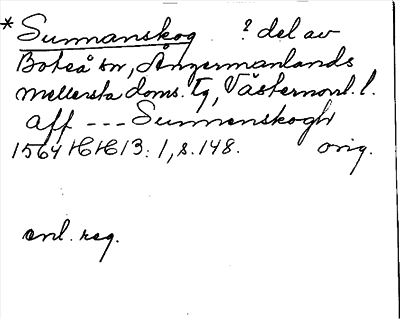 * Sunnanskog ? del av
Boteå sn, Ångermanlands
mellersta doms. Tg, Västernorrl. l.
aff --- Sunnenskogh
1564 HH 13: 1, s. 148. orig.
enl. reg.